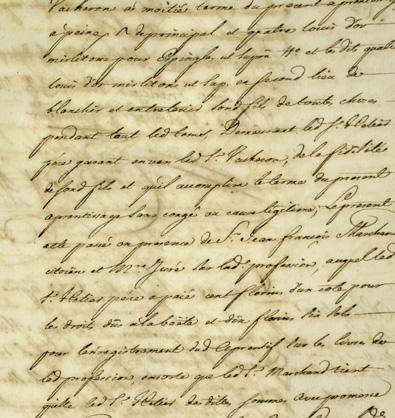 Vacheron à moitié terme du present aprentissage
à peine de principal et quatre louis d'or
mirlitons pour Epingle, ut supra 4° et les dits quatre
louis d'or mirlitons ut sup. en second lieu de
blanchir et entretenir sondt fils de toutes choses
pendant tout led. tems, Demeurant led. Sr. Helier
pere garant envers led. Sr. Vacheron, de la fidélité
de sond. fils et qu'il accomplira le terme du present
aprentissage sans congé ou cause légitime, Le present
acte passé en presence de Sr. Jean françois Marchand
citoien et Mre. Juré sur lad. profession, auquel led
Sr. Helier pere a paié cent florins d'un coté pour
les droits dûs à la boëte et dix florins six sols
pour l'enregistrement dud. Aprentif sur les livres de
lad. profession, ensorte que led. Sr. Marchand tient
quitte led. Sr. Helier desdites sommes avec promesse